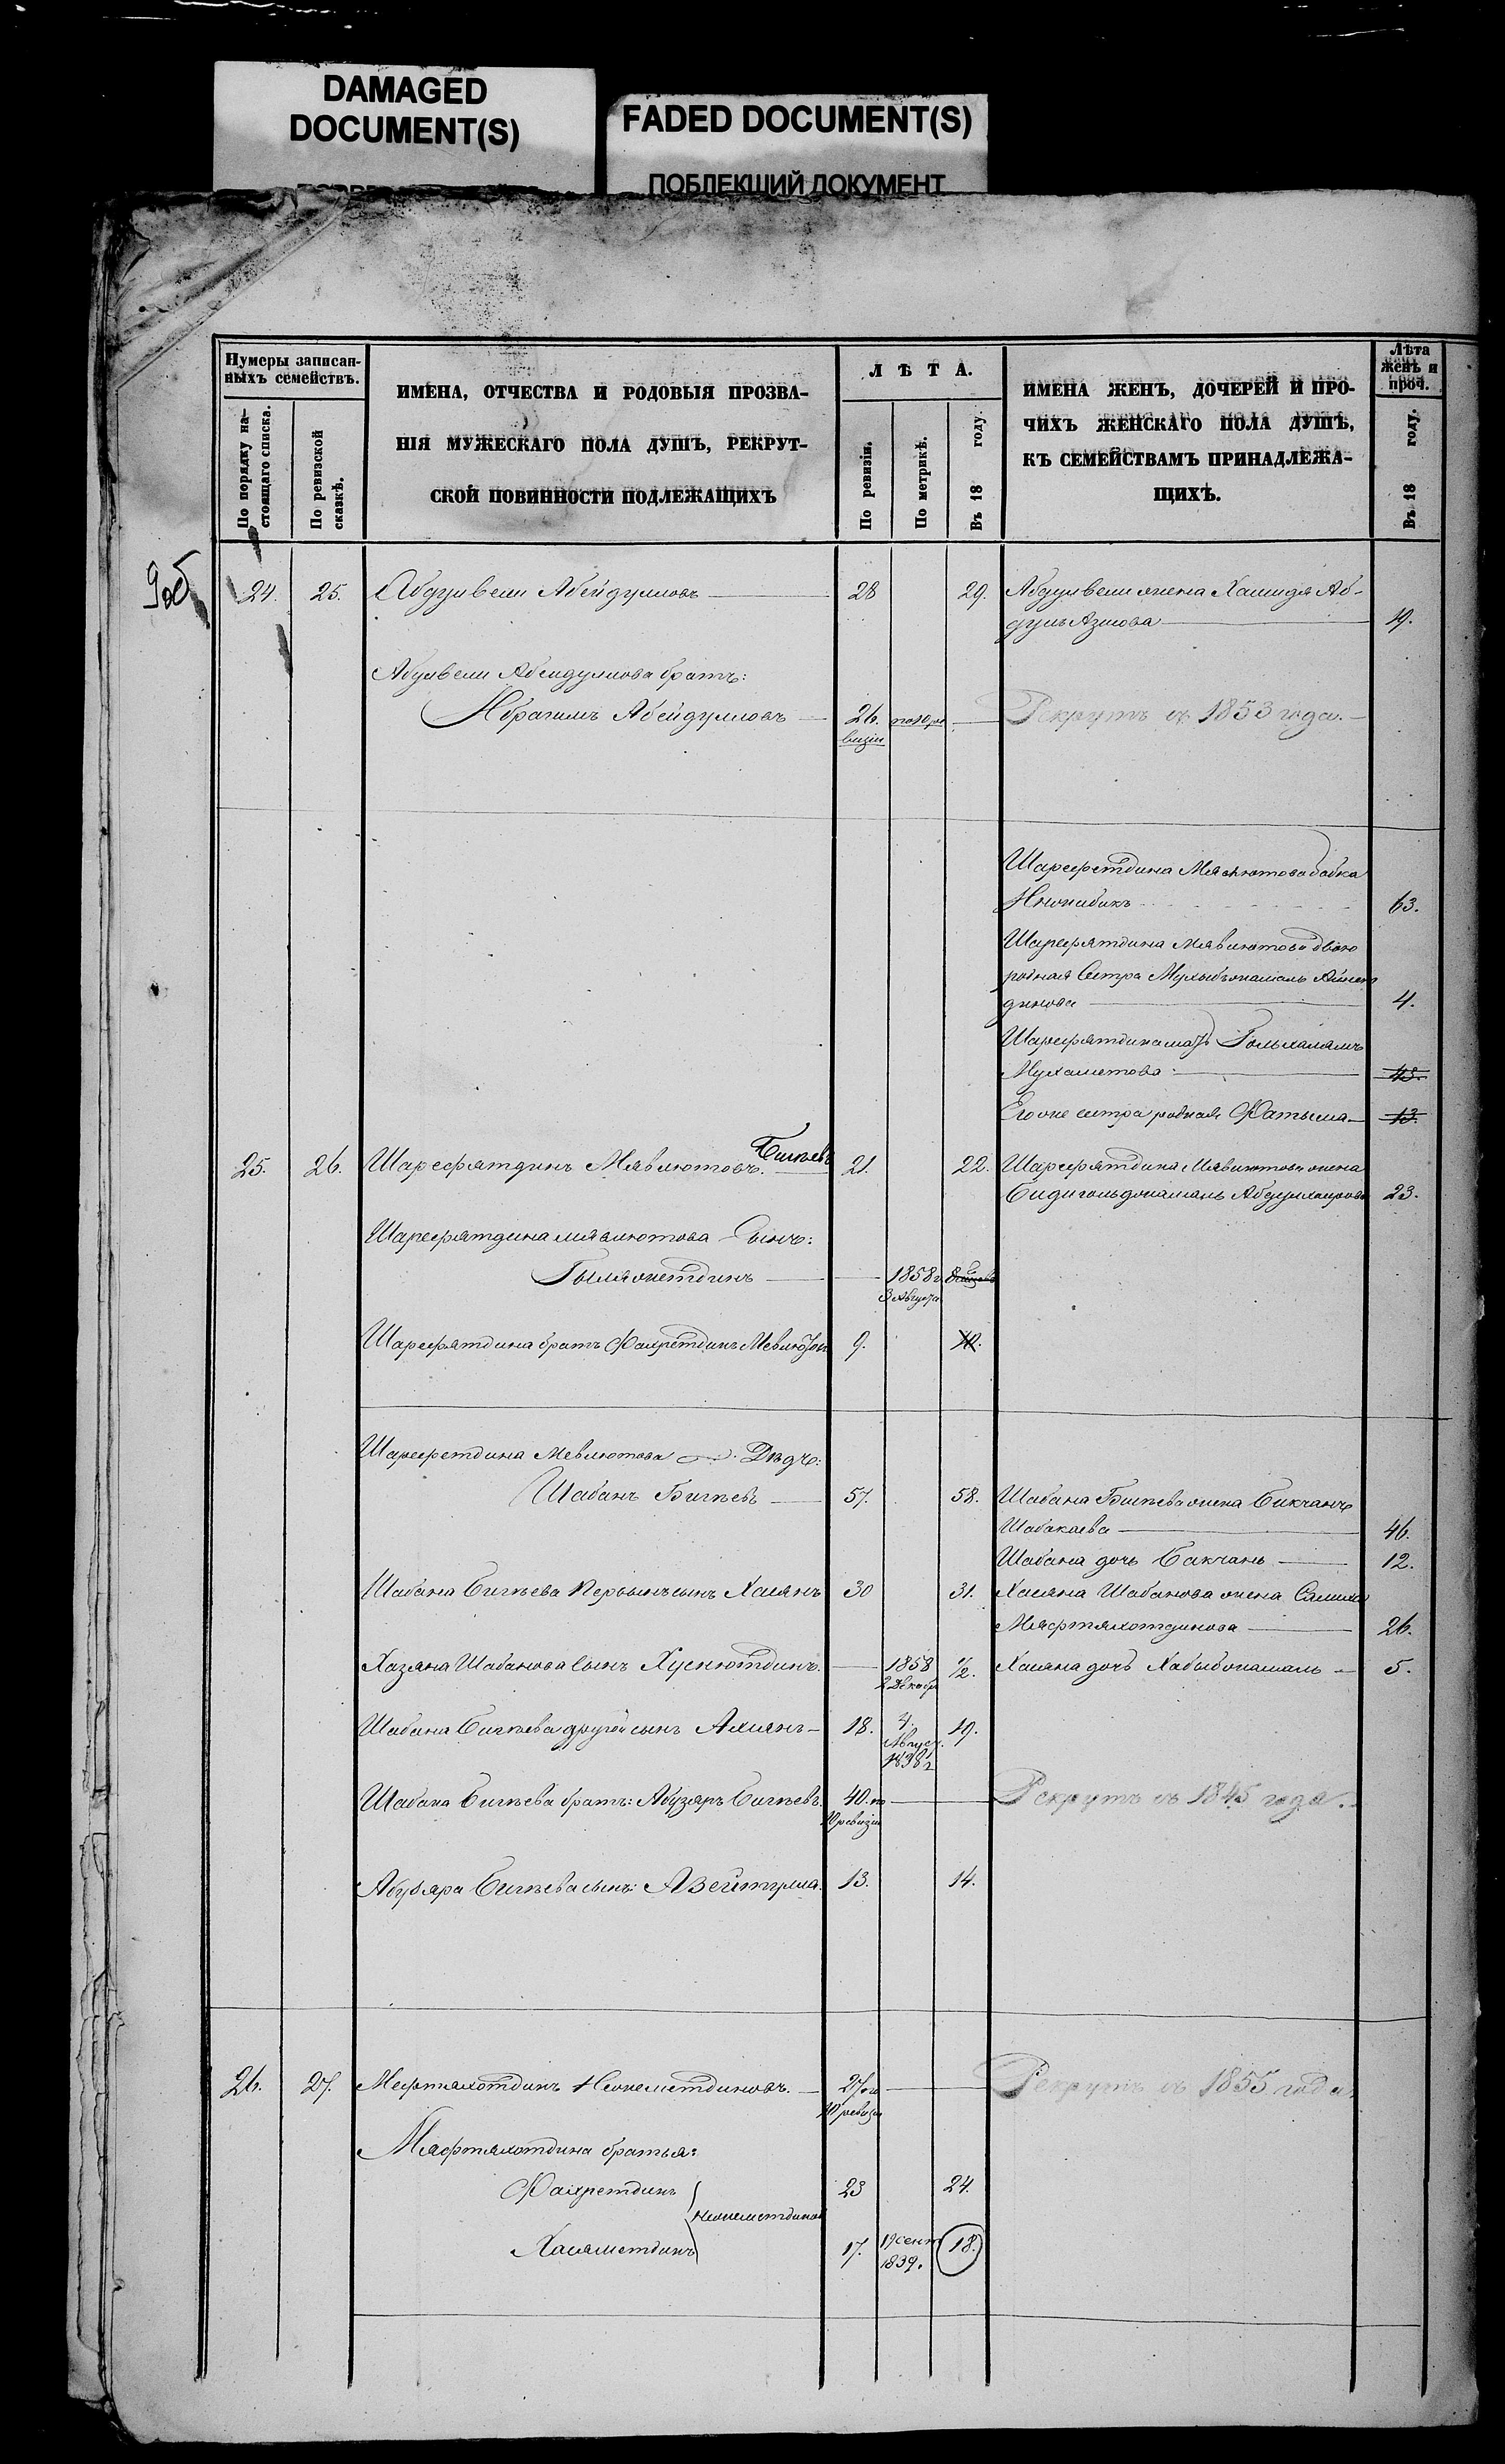 DAMAGED
DOCUMENT(S)
FADED DOCUMENT(S)
ПОБЛЕКШИЙ ДОКУМЕНТ
Нумеры записан-
ныхъ семействъ.
По порядку на-
стоящаго списка.
По ревизской
сказкѣ.
ИМЕНА, ОТЧЕСТВА И РОДОВЫЯ ПРОЗВА-
НІЯ МУЖЕСКАГО ПОЛА ДУШЪ, РЕКРУТ-
СКОЙ ПОВИННОСТИ ПОДЛЕЖАЩИХЪ
ЛѢТА.
По ревизіи.
По метрикѣ.
Въ 18 году.
ИМЕНА ЖЕНЪ, ДОЧЕРЕЙ И ПРО-
ЧИХЪ ЖЕНСКАГО ПОЛА ДУШЪ,
КЪ СЕМЕЙСТВАМЪ ПРИНАДЛЕЖА-
ЩИХЪ.
Лѣта
женъ и
проч.
Въ 18 году.
9об
24. 25. Абдулвели Абейдулловъ 28 29. Абдулвели жена Хамидя Аб-
дулъ Азизова 19.
Абулвели Абейдуллова братъ:
Ибрагимъ Абейдулловъ 26. по 10 ре Рекрутъ съ 1853 года.
визіи
Шарефетдина Мявлютова бабка
63.
Шарефятдина Мявлютова двою
родная сестра
динова 4.
Шарефятдина мать
Мухаметова 45.
Его же сестра родная Фатыма 13.
25. 26. Шарефятдинъ Мявлютовъ. Бигѣевъ 21. 22. Шарефятдина Мявлютова жена
23.
Шарефятдина Мявлютова Сынъ:
1858 г.
3 Августа
Шарефятдина братъ Фахретдинъ Мевлютовъ 9. 10.
Шарефетдина Мевлютова Дѣдъ:
Шабанъ Бигѣевъ 57. 58. Шабана Бигѣева жена Бикчанъ
Шабакаева 46.
Шабана дочь Бакчань 12.
Шабана Бигѣева первый сынъ Хасянъ 30 31. Хасяна Шабанова жена
Мяфтяхотдинова 26.
Хазяна Шабанова сынъ Хуснютдинъ. 1858 1/2. Хасяна дочь Хабыбжамаль 5.
2 Декабр
Шабана Бигѣева другой сынъ 18. 4. 19.
Август.
1838 г.
Шабана Бигѣева братъ: Абузяръ Бигѣевъ. 40. по Рекрутъ съ 1845 года.
10 ревизіи
Абузяра Бигѣева сынъ: 13. 14.
26. 27. Мефтяхотдинъ Нежеметдиновъ. 27 по Рекрутъ съ 1855 года.
10 ревизіи
Мяфтяхотдина братья:
Фахретдинъ 23 24.
Нежеметдиновы
17. 19 сент 18.
1839.